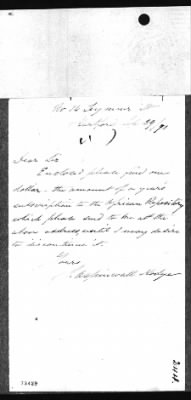 No 4 Seymour St
29/91
Dear Sir
Enclosed please find one
dollar, the amount of a years
subscription to the African Repository
which please send to me at the
above address, until I may desire
to discontinue it.
Yours
Aspinwall Hodge
73429